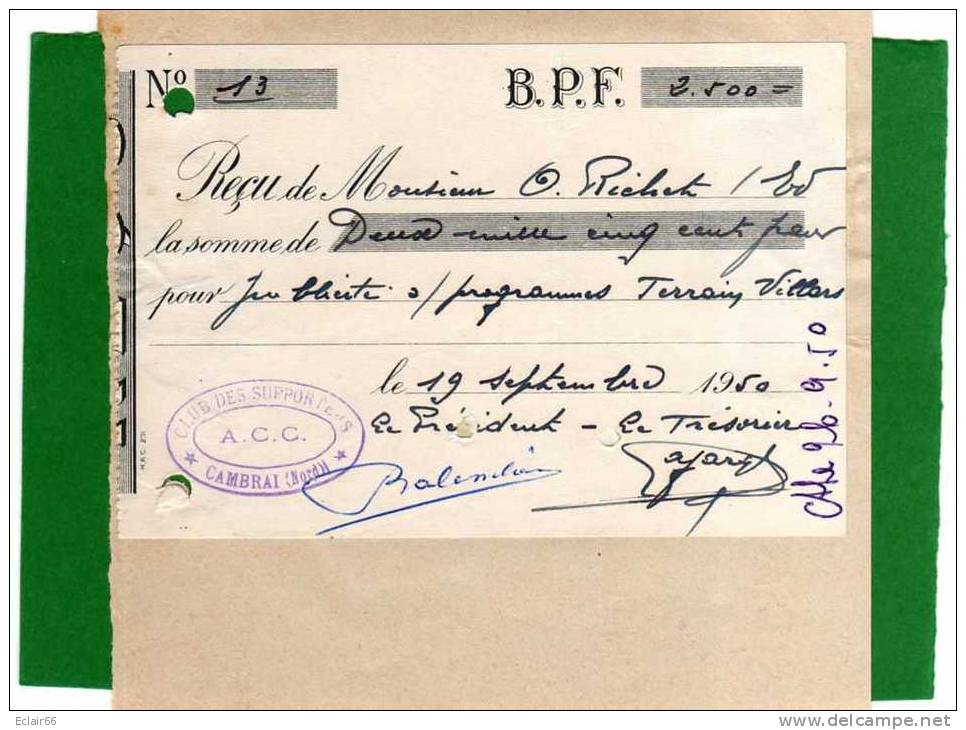 Nº 13 B.P.F. 2.500 =
Reçu de Monsieur O. Richet / Ed
la somme de Deux mille cinq cent francs
pour publicité s/ programmes Terrain Villars
le 19 Septembre 1950
Le Président - Le Trésorier
CLUB DES SUPPORTERS
A.C.C.
CAMBRAI (Nord)
26-9-50
Eclair66
www.delcampe.net